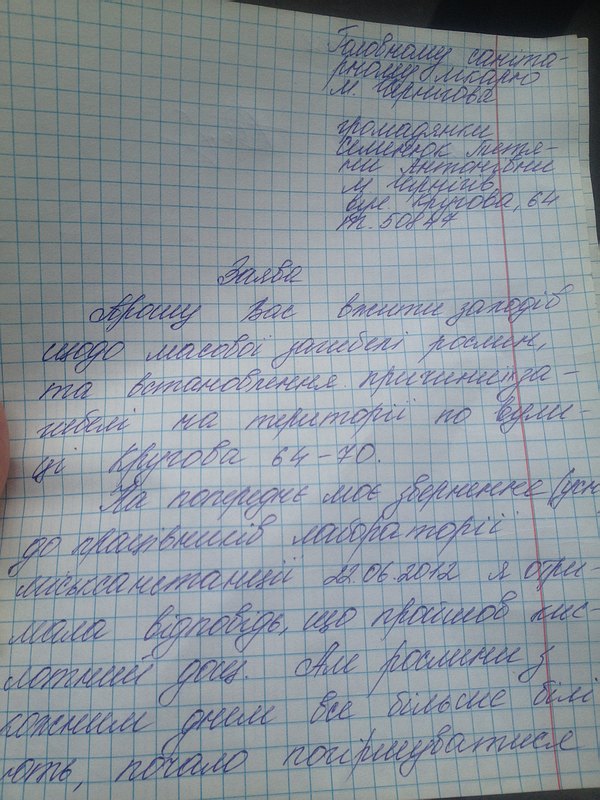 Головному саніта-
рному лікарю
м. Чернігова
громадянки
Семенюк Тетя-
ни Антонівни
м Чернігів,
вул Кругова, 64
т. 50847
Заява
Прошу Вас вжити заходів
щодо масової загибелі рослин,
та встановлення причини за-
гибелі на території по вули-
ці Кругова 64-70.
На попереднє моє звернення (усн
до працівників лабораторії
міськсанстанції 22.06.2012 я отри-
мала відповідь, що пройшов кис-
лотний дощ. Але рослини з
кожним днем все більше білі
ють, почало погіршуватися